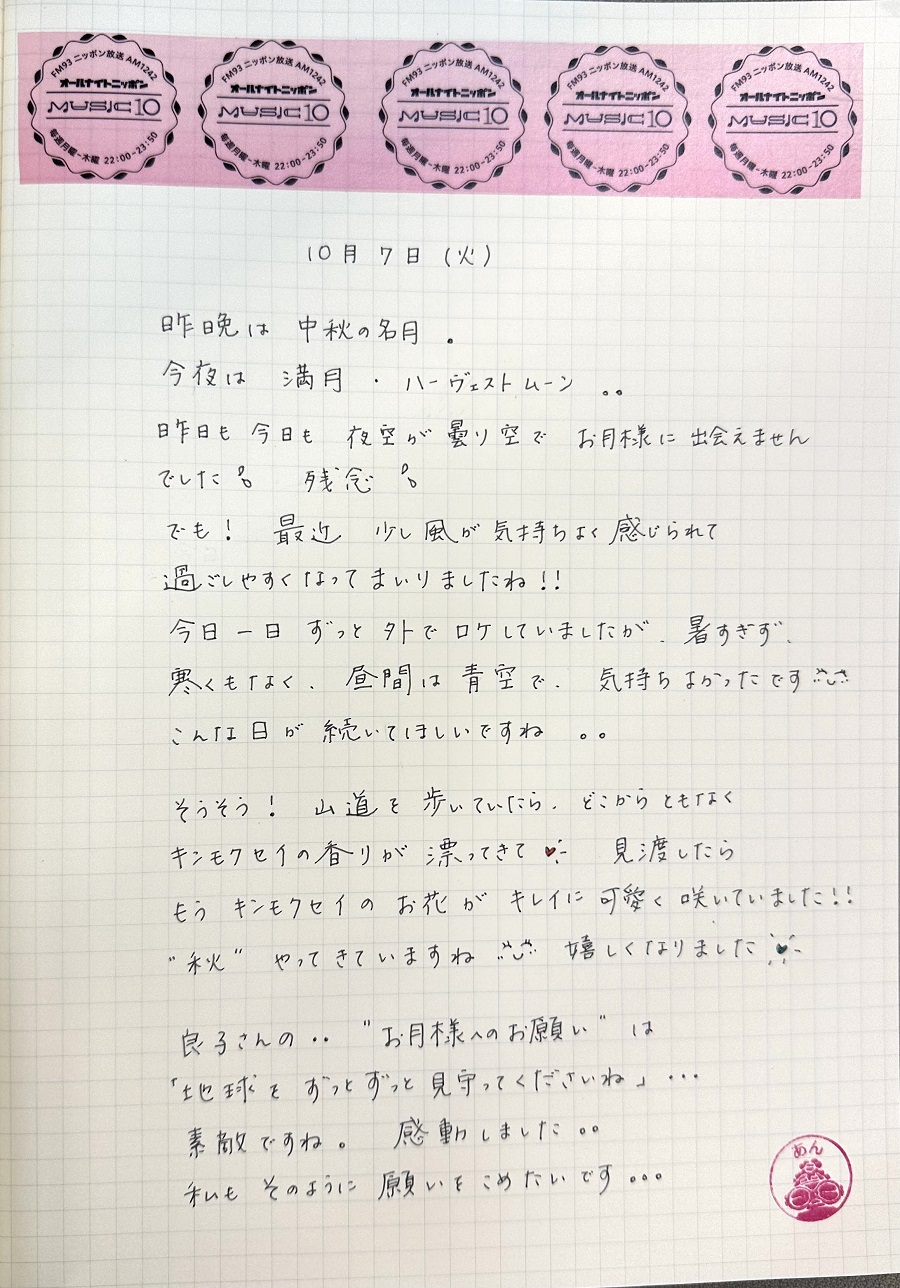 FM93 ニッポン放送 AM1242
オールナイトニッポン
MUSIC10
毎週月曜-木曜 22:00-23:50
FM93 ニッポン放送 AM1242
オールナイトニッポン
MUSIC10
毎週月曜-木曜 22:00-23:50
FM93 ニッポン放送 AM1242
オールナイトニッポン
MUSIC10
毎週月曜-木曜 22:00-23:50
FM93 ニッポン放送 AM1242
オールナイトニッポン
MUSIC10
毎週月曜-木曜 22:00-23:50
FM93 ニッポン放送 AM1242
オールナイトニッポン
MUSIC10
毎週月曜-木曜 22:00-23:50
10月 7日 (火)
昨晩は 中秋の名月 。
今夜は 満月 ・ ハーヴェストムーン 。。
昨日も 今日も 夜空が 曇り空で お月様に 出会えません
でした 残念
でも! 最近 少し風が 気持ちよく 感じられて
過ごしやすくなって まいりましたね!!
今日一日 ずっと 外で ロケしていましたが、暑すぎず、
寒くもなく、昼間は 青空で、気持ちよかったです
こんな日が 続いてほしいですね 。。
そうそう! 山道を 歩いていたら、どこからともなく
キンモクセイの香りが 漂ってきて 見渡したら
もう キンモクセイの お花が キレイに 可愛く 咲いていました!!
"秋" やってきていますね 嬉しくなりました
良子さんの‥ "お月様へのお願い" は
「地球を ずっとずっと 見守ってくださいね」…
素敵ですね。 感動しました 。。
私も そのように 願いを こめたいです 。。。
あん